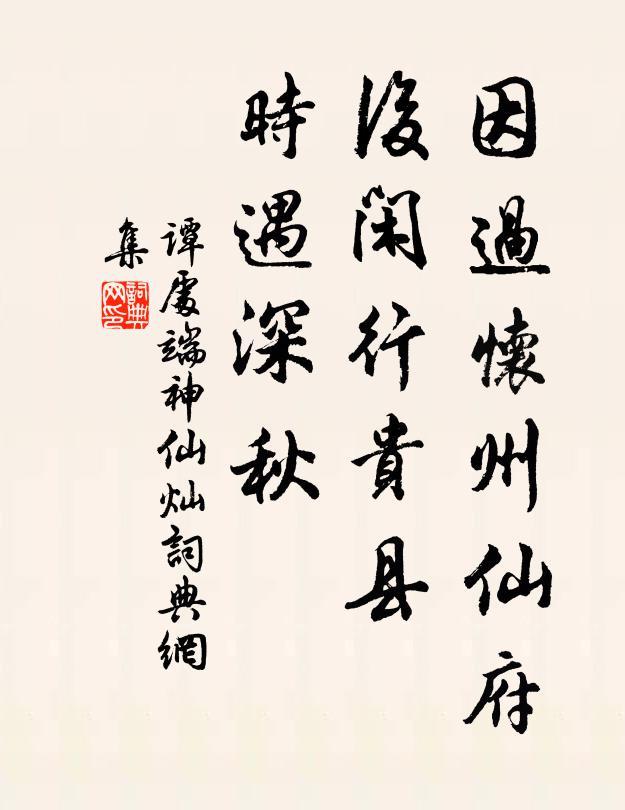 因過懷州仙府
後閑行貴县
時遇深秋
谭處端神仙灿詞典網
集
詞典
网印